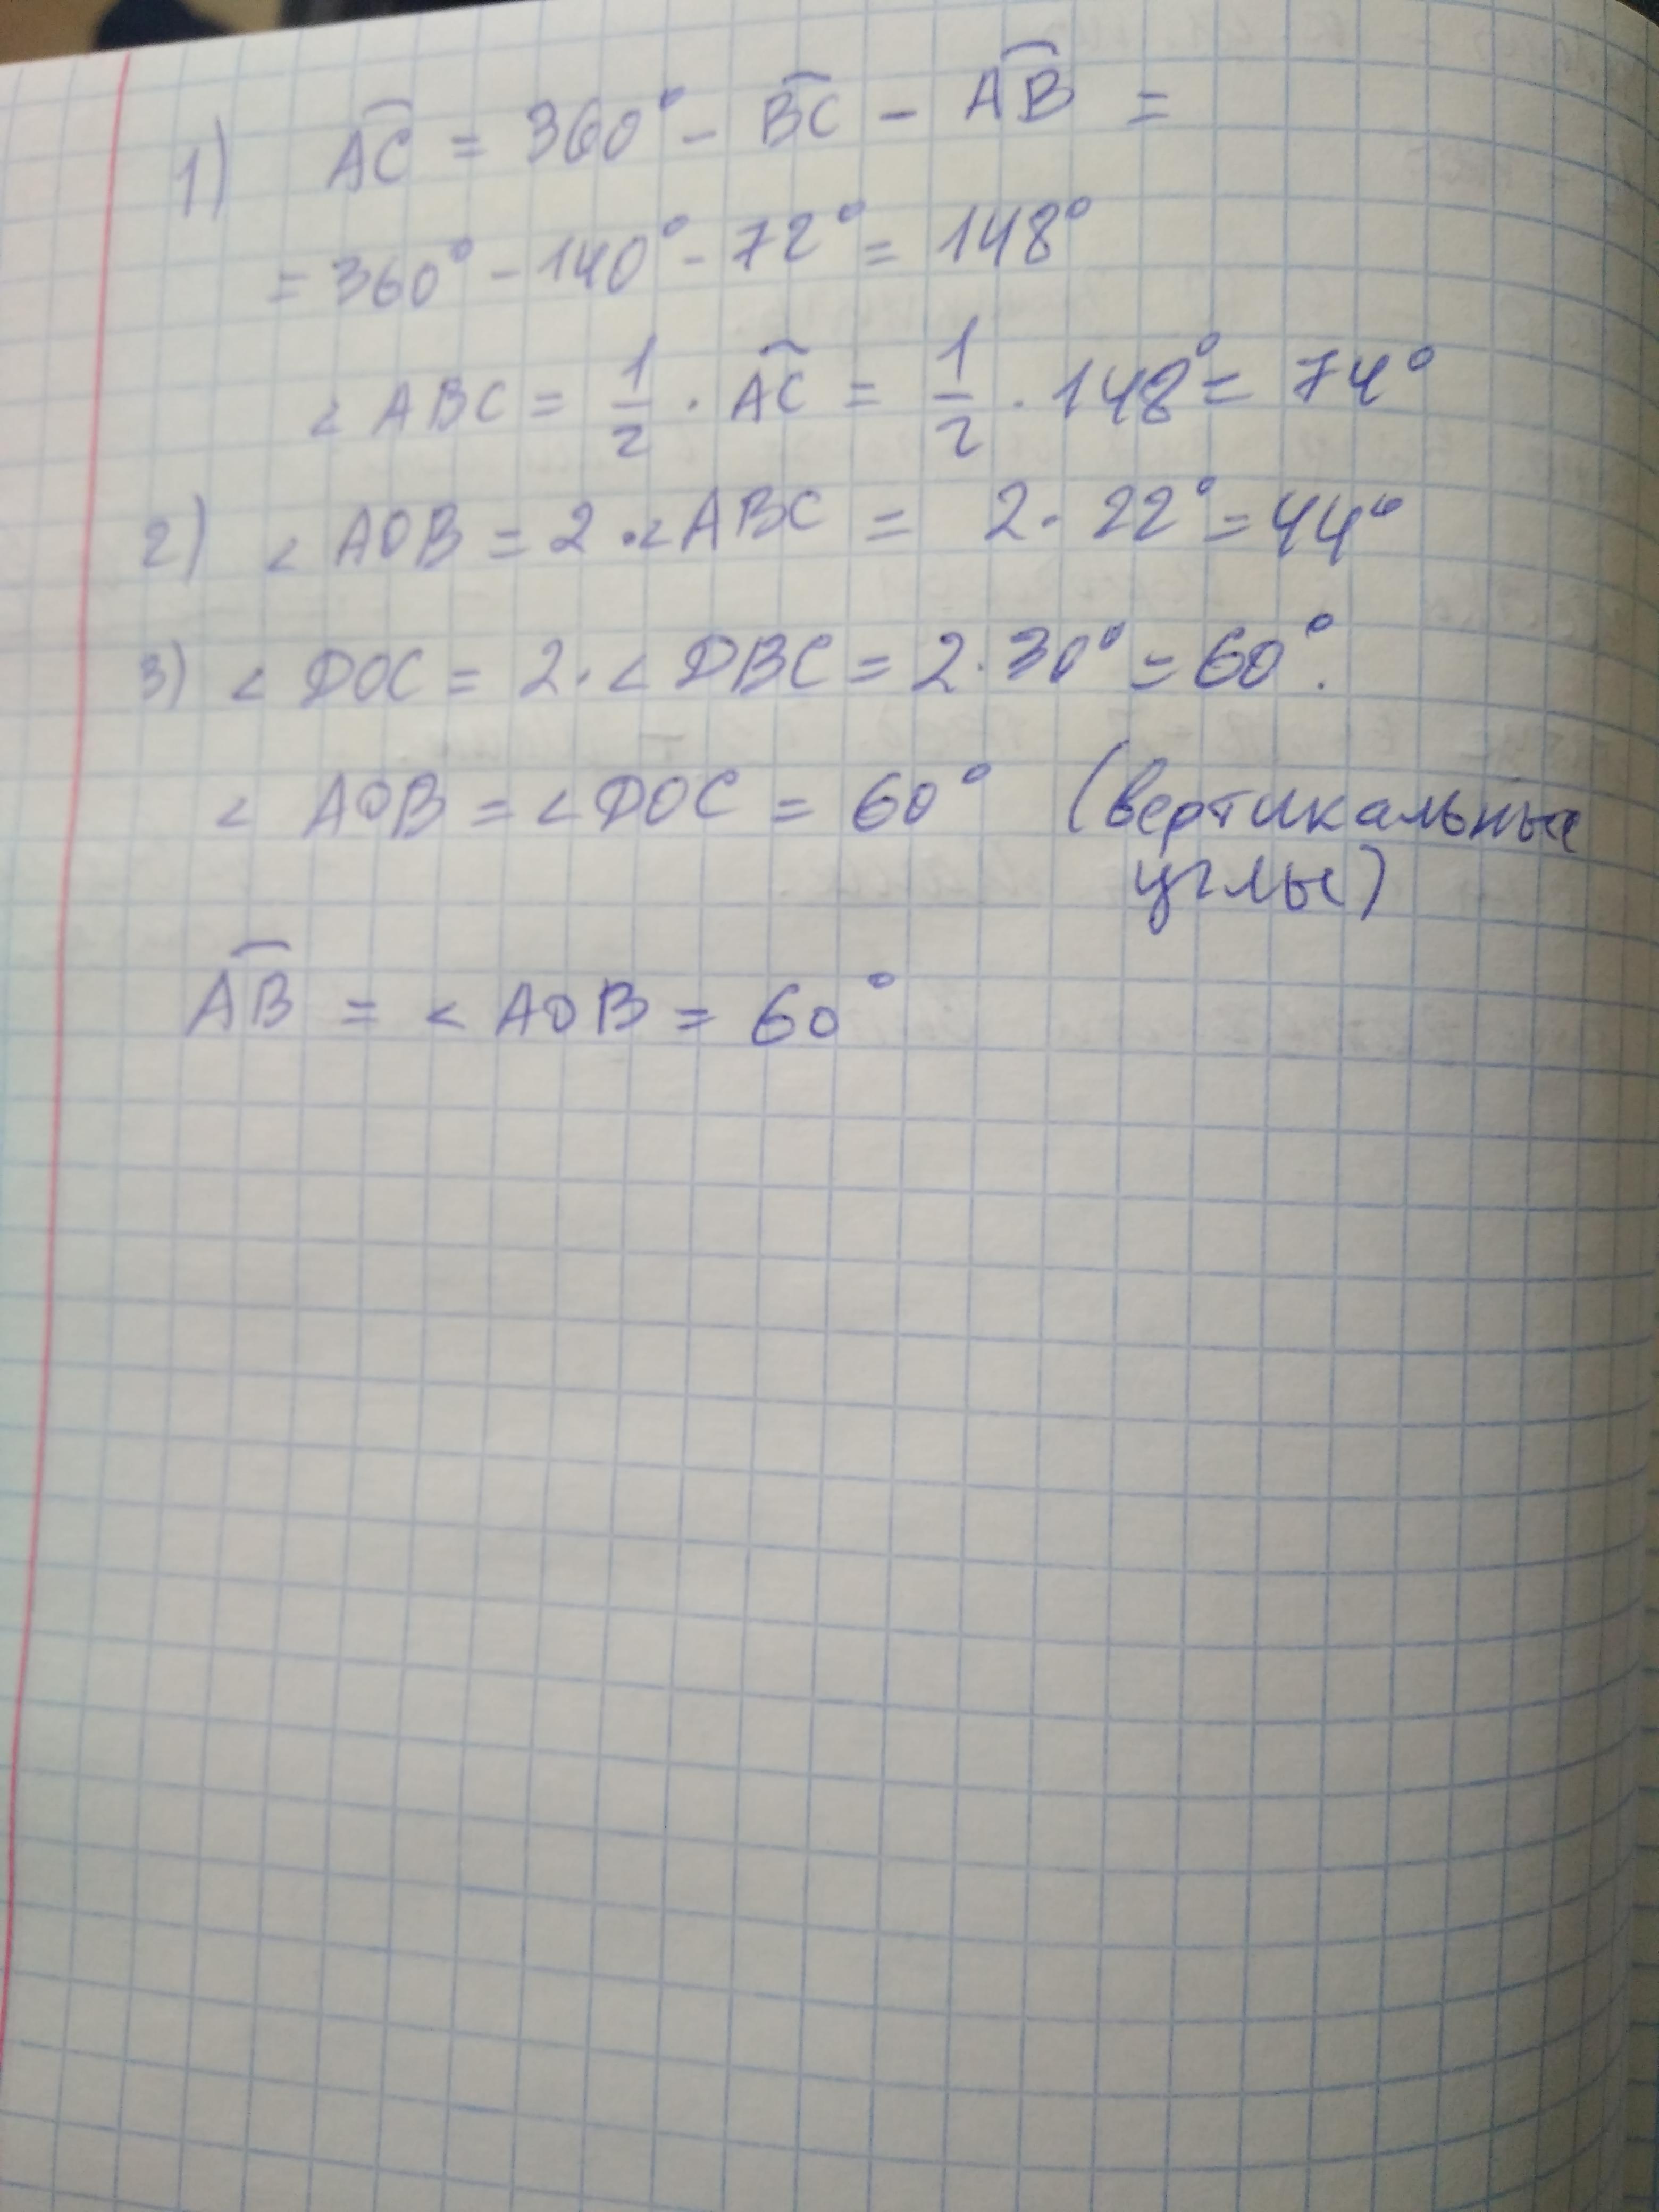 1) A͡C = 360° - B͡C - A͡B =
= 360° - 140° - 72° = 148°
< ABC = 1/2 · A͡C = 1/2 · 148° = 74°
2) < AOB = 2 · < ABC = 2 · 22° = 44°
3) < DOC = 2 · < DBC = 2 · 30° = 60°.
< AOB = < DOC = 60° (вертикальные
углы)
A͡B = < AOB = 60°